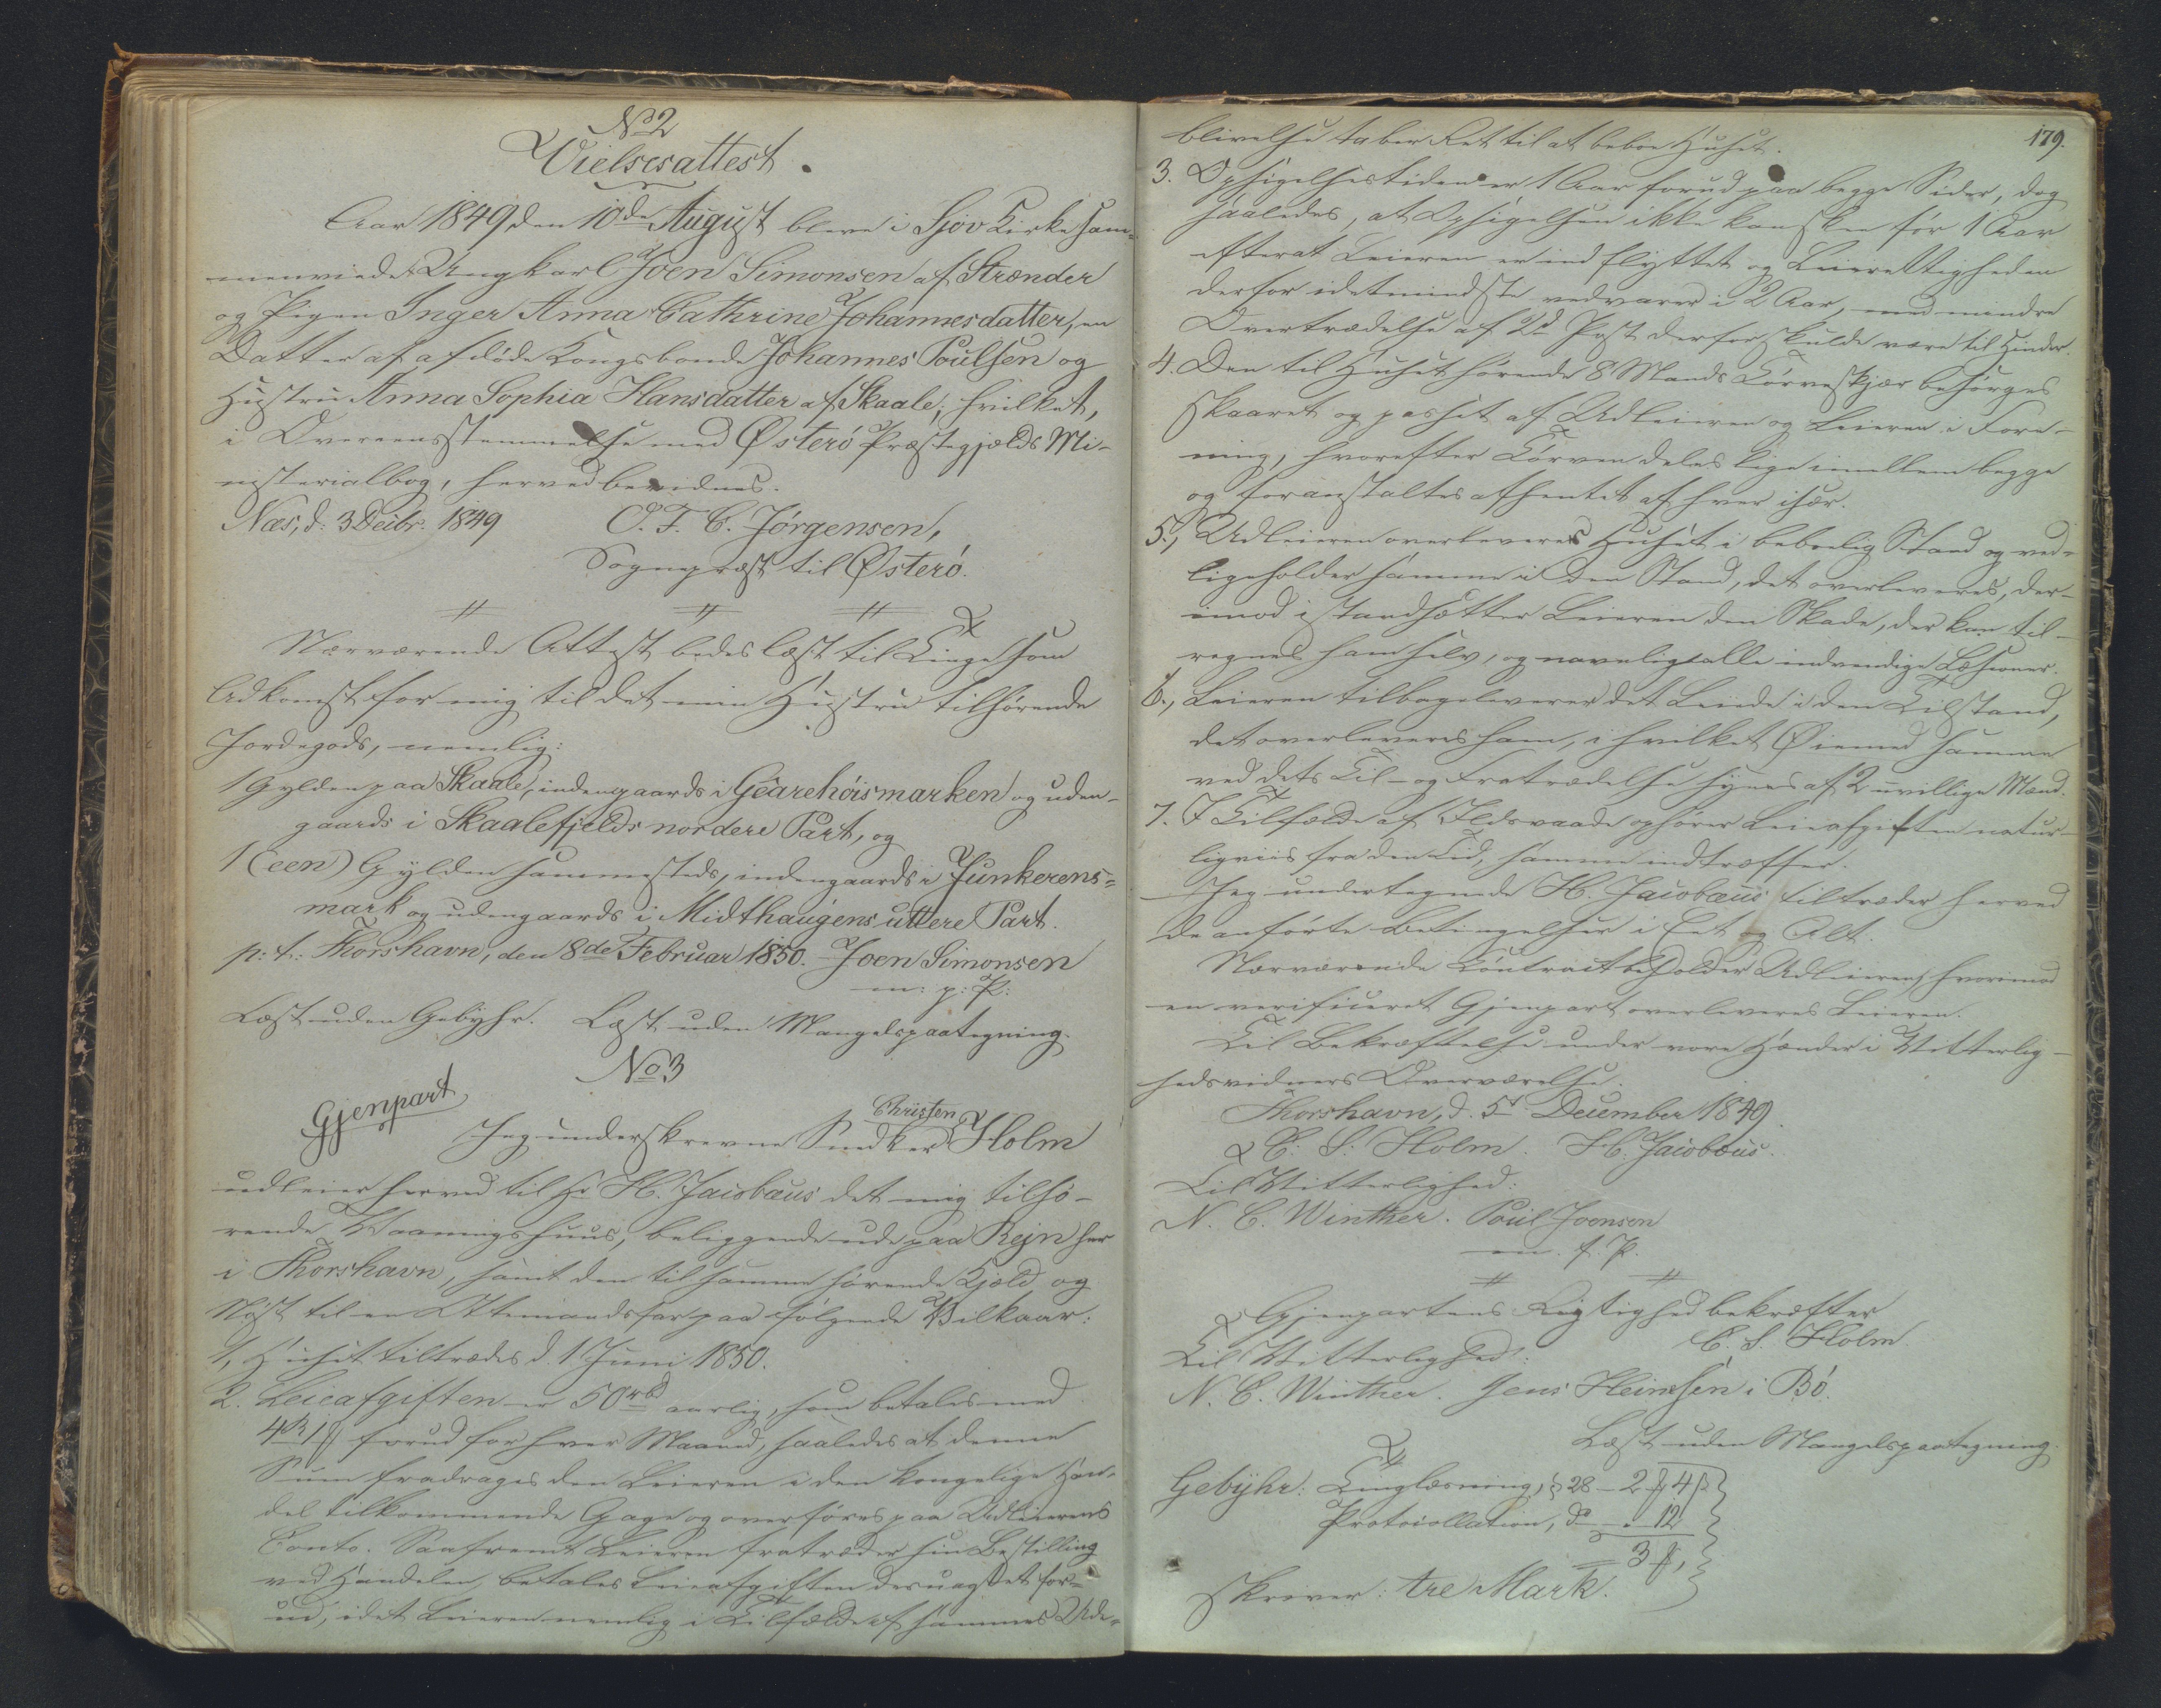 No 2
Vielsesattest.
Aar 1849, den 10de August bleve i Sjov Kirke sam-
menviede Ungkarl Joen Simonsen af Strænder
og Pigen Inger Anna Cathrine Johannesdatter, en
Datter af afdøde Kongsbonde Johannes Poulsen og
Hustru Anna Sophia Hansdatter af Skaale, hvilket,
i Overeensstemmelse med Østerö Præstegjelds Mi-
nisterialbog, herved bevidnes.
Næs, d: 3 Decbr. 1849 O. F. C. Jörgensen,
Sognepræst til Østerö.
Nærværende Attest bedes læst til Tinge som
Adkomst for mig til det min Hustru tilhørende
Jordegods, nemlig:
1 Gylden paa Skaale, indengaards i Gèarehöismarken og uden-
gaards i Skaalefjelds nordere Part, og
1 (een) Gylden sammesteds, indengaards i Junkerens-
mark og udengaards i Midthaugens uttere Part.
p: t: Thorshavn, den 8de Februar 1850. Joen Simonsen
m: p: P:
Læst uden Gebyhr. Læst uden Mangelspaategning.
No 3
Gjenpart
Christen
Jeg underskrevne Snedker Holm
udleier herved til Hr H. Jacobæus det mig tilhø-
rende Vaaningshuus, beliggende ude paa Rejn her
i Thorshavn, samt den til samme hørende Kjeld og
Nøst til en Ottemandsfar paa følgende Vilkaar:
1, Huset tiltrædes d. 1 Juni 1850.
2. Leieafgiften er 50 rbd aarlig, som betales med
4 R 1 ß forud for hver Maaned, saaledes at denne
Sum fradrages den Leieren i den kongelige Han-
del tilkommende Gage og overføres paa Udleierens
Conto. Saafremt Leieren fratræder sin Bestilling
ved Handelen, betales Leieafgiften desuagtet for-
ud, idet Leieren nemlig i Tilfælde af sammes Ude-
179.
blivelse taber Ret til at beboe Huset.
3. Opsigelsestiden er 1 Aar forud paa begge Sider, dog
saaledes, at Opsigelsen ikke kan skee før 1 Aar
efterat Leieren er indflyttet og Leierettigheden
derfor idetmindste vedvarer i 2 Aar, med mindre
Overtrædelse af 2d Post derfor skulde være til Hinder.
4. Den til Huset hørende 8 Mands Tørveskjær besørges
skaaret og passet af Udleieren og Leieren i Fore-
ning, hvorefter Tørven deles lige imellem begge
og foranstaltes afhentet af hver især.
5., Udleieren overleverer Huset i beboelig Stand og ved-
ligeholder samme i den Stand, det overleveres, der-
imod istandsætter Leieren den Skade, der kan til-
regnes ham selv, og navnlig alle indvendige Læsioner.
6., Leieren tilbageleverer det Leiede i den Tilstand,
det overleveres ham, i hvilket Øiemed samme
ved dets Til- og Fratrædelse synes af 2 uvillige Mænd.
7. I Tilfælde af Ildsvaade ophører Leieafgiften natur-
ligviis fra den Tid, samme indtræffer.
Jeg undertegnede H. Jacobæus tiltræder herved
de anførte Betingelser i Eet og Alt.
Nærværende Contract beholder Udleieren, hvorimod
en verificeret Gjenpart overleveres Leieren.
Til Bekræftelse under vore Hænder i Vitterlig-
hedsvidners Overværelse.
Thorshavn, d. 5t December 1849.
C. S. Holm. H. Jacobæus.
Til Vitterlighed:
N. C. Winther. Poul Joensen
m. f. P.
Gjenpartens Rigtighed bekræfter
C. S. Holm
Til Vitterlighed:
N. C. Winther. Jens Heinesen i Bö.
Læst uden Mangelspaategning.
Gebyhr: Tinglæsning, § 28 - 2 ₰ 4 ß
Protocollation, do - " - 12
= 3 ₰,
skriver: tre Mark.